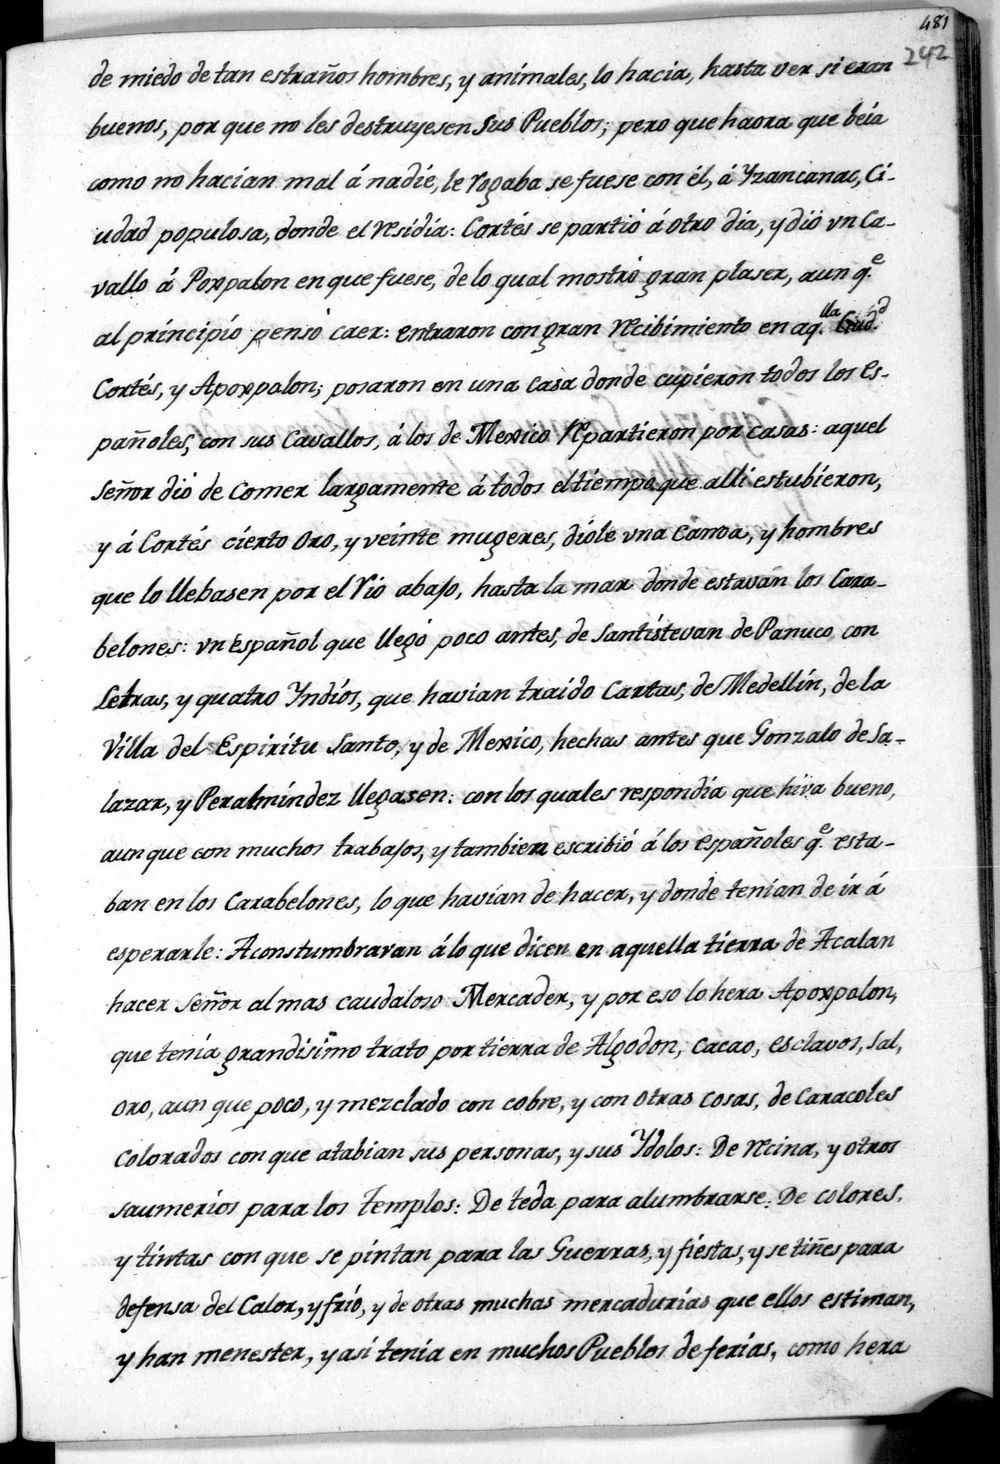 481
242
de miedo de tan estraños hombres, y animales, lo hacia, hasta ver si eran
buenos, por que no les destruyesen sus Pueblos; pero que haora que béia
como no hacian mal á nadie, le rogaba se fuese con él, á Yzancanac, Ci-
udad populosa, donde el residia: Cortés se partió á otro dia, y dió vn Ca-
vallo á Poxpalon en que fuese, de lo qual mostró gran plaser, aun q.e
al principio pensó caer: entraron con gran recibimiento en aq.lla Ciud.d
Cortés, y Apoxpalon; posaron en una casa donde cupieron todos los Es-
pañoles, con sus Cavallos, á los de Mexico repartieron por casas: aquel
señor dio de comer largamente á todos el tiempo que alli estubieron,
y á Cortés cierto oro, y veinte mugeres, dióle vna Canoa, y hombres
que lo llebasen por el rio abajo, hasta la mar donde estavan los Cara-
belones: vn Español que llegó poco antes, de Santistevan de Panuco con
Letras, y quatro Yndios, que havian traido Cartas, de Medellin, de la
Villa del Espiritu Santo, y de Mexico, hechas antes que Gonzalo de Sa-
lazar, y Peralmindez llegasen: con los quales respondia que hiva bueno,
aun que con muchos trabajos, y tambien escribió á los españoles q.e esta-
ban en los Carabelones, lo que havian de hacer, y donde tenian de ir á
esperarle: Aconstumbravan á lo que dicen en aquella tierra de Acalan
hacer señor al mas caudaloso Mercader, y por eso lo hera Apoxpalon,
que tenia grandisimo trato por tierra de Algodon, cacao, esclavos, sal,
oro, aun que poco, y mezclado con cobre, y con otras cosas, de caracoles
colorados con que atabian sus personas, y sus Ydolos: De recina, y otros
saumerios para los templos: De teda para alumbrarse: De colores,
y tintas con que se pintan para las Guerras, y fiestas, y se tiñes para
defensa del Calor, y frio, y de otras muchas mercadurias que ellos estiman,
y han menester, y asi tenia en muchos Pueblos de ferias, como hera